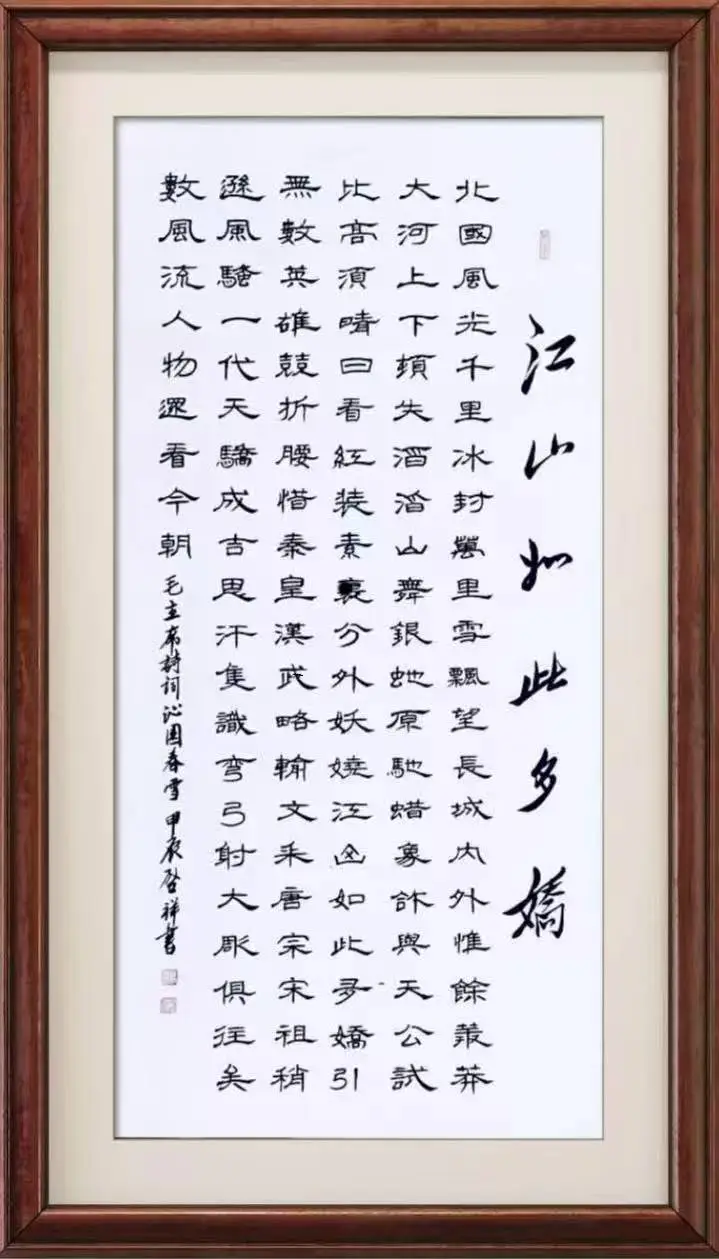 江山如此多嬌
北國風光千里冰封萬里雪飄望長城内外惟餘莽莽
大河上下頓失滔滔山舞銀蛇原馳蜡象欲與天公試
比高須晴日看紅装素裹分外妖嬈江山如此多嬌引
無數英雄競折腰惜秦皇漢武略輸文采唐宗宋祖稍
遜風騷一代天驕成吉思汗隻識彎弓射大彫俱往矣
數風流人物還看今朝
毛主席詩詞沁園春雪甲辰啓祥書